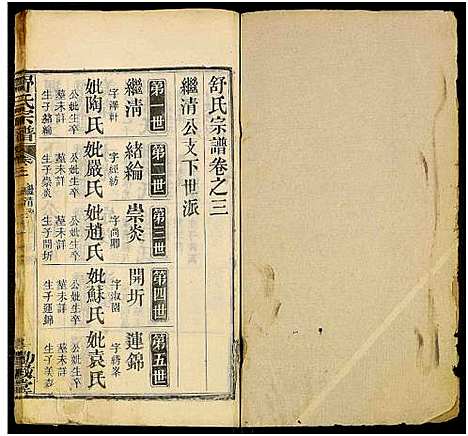 舒氏宗譜卷之三
繼清公支下世派
第一世
繼清
字澤軒
妣陶氏
公妣生卒
墓未詳
生子緒綸
第二世
緒綸
字經紡
妣嚴氏
公妣生卒
墓未詳
生子崇炎
第三世
崇炎
字尚卿
妣趙氏
公妣生卒
墓未詳
生子開圻
第四世
開圻
字淑園
妣蘇氏
公妣生卒
墓未詳
生子運錦
第五世
運錦
妣袁氏
公妣生卒
墓未詳
舒氏宗譜
卷三
繼清